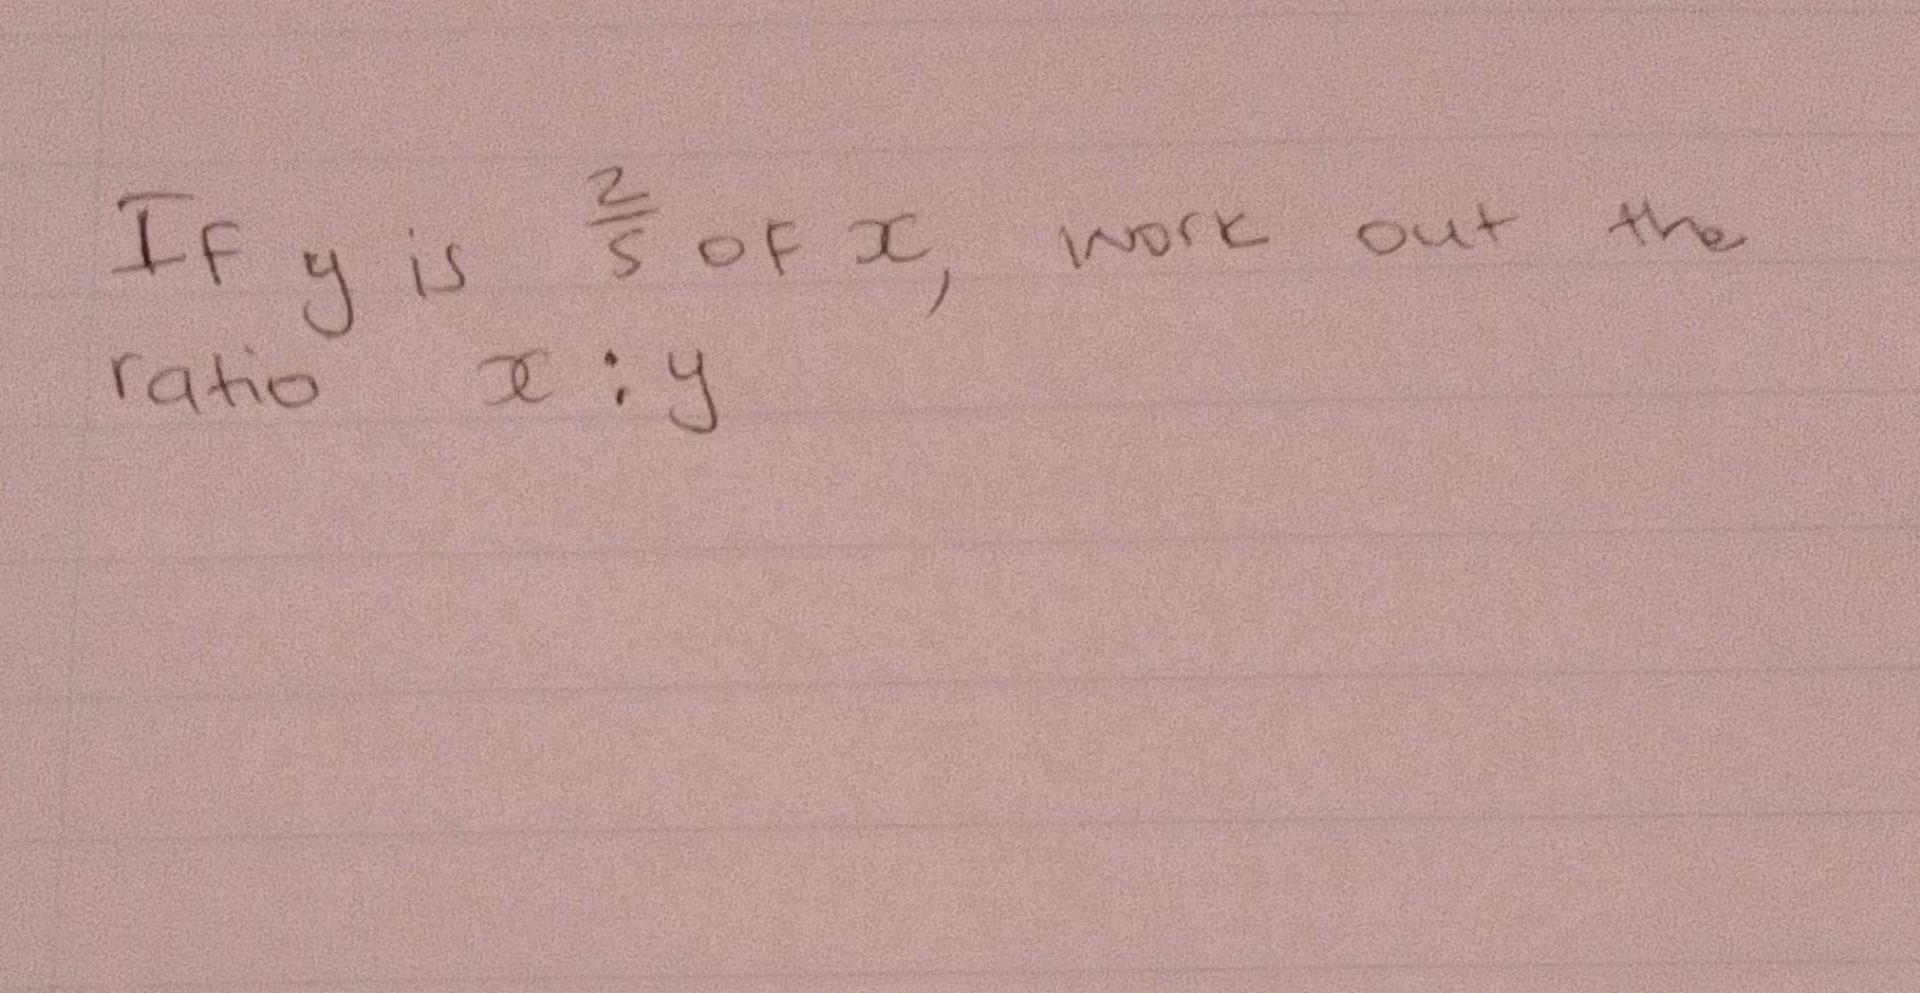 If y is 2/5 of x, work out the
ratio x : y